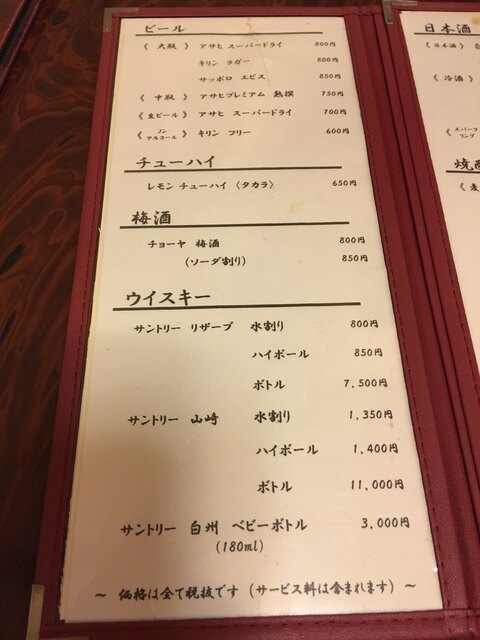 ビール
《 大瓶 》 アサヒ スーパードライ 800円
キリン ラガー 800円
サッポロ エビス 850円
《 中瓶 》 アサヒプレミアム 熟撰 750円
《生ビール》 アサヒ スーパードライ 700円
《 ノンアルコール 》 キリン フリー 600円
チューハイ
レモン チューハイ (タカラ) 650円
梅酒
チョーヤ 梅酒 800円
(ソーダ割り) 850円
ウイスキー
サントリー リザーブ 水割り 800円
ハイボール 850円
ボトル 7,500円
サントリー 山崎 水割り 1,350円
ハイボール 1,400円
ボトル 11,000円
サントリー 白州 ベビーボトル 3,000円
(180ml)
~ 価格は全て税抜です (サービス料は含まれます) ~
日本酒
《日本酒》
《 冷酒 》
スパークリング
《 麦